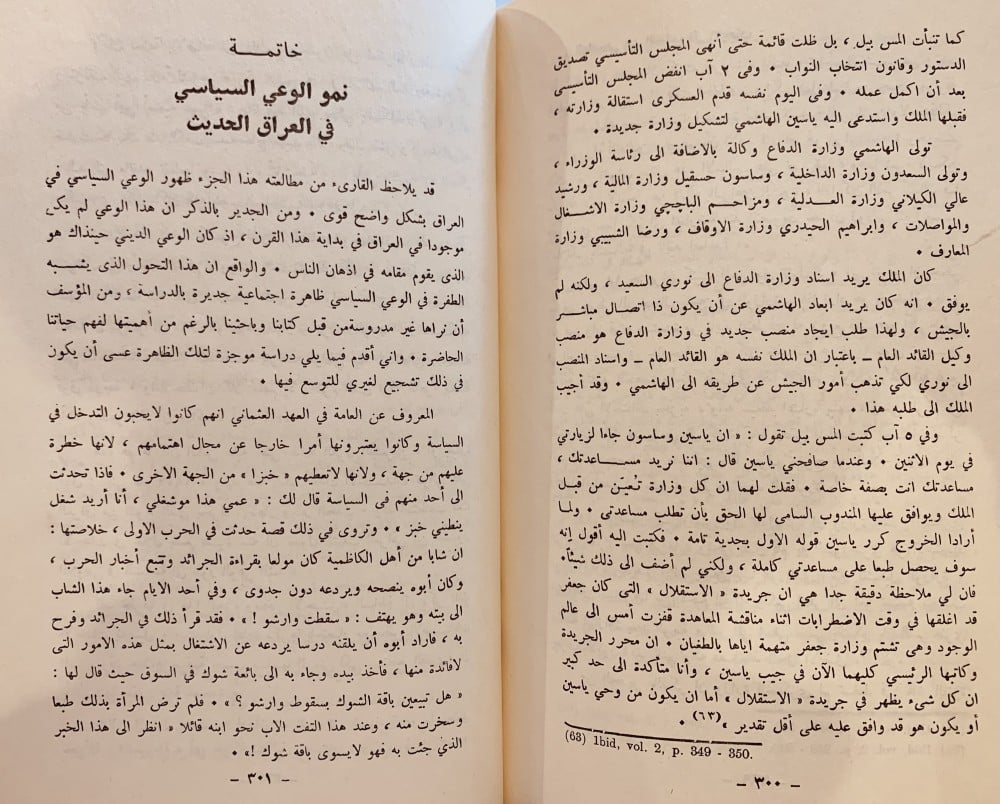 كما تنبأت المس بيل ، بل ظلت قائمة حتى أنهى المجلس التأسيسي تصديق
الدستور وقانون انتخاب النواب ٠ وفى ٢ آب انفض المجلس التأسيسى
بعد أن اكمل عمله ٠ وفى اليوم نفسه قدم العسكرى استقالة وزارته ،
فقبلها الملك واستدعى اليه ياسين الهاشمي لتشكيل وزارة جديدة ٠
تولى الهاشمي وزارة الدفاع وكالة بالاضافة الى رئاسة الوزراء ،
وتولى السعدون وزارة الداخلية ، وساسون حسقيل وزارة المالية ، ورشيد
عالي الكيلاني وزارة العـدلية ، ومزاحـم الباچچي وزارة الاشـغال
والمواصلات ، وابراهيم الحيدري وزارة الاوقاف ، ورضا الشبيبي وزارة
المعارف ٠
كان الملك يريد اسناد وزارة الدفاع الى نوري السعيد ، ولكنه لم
يوفق ٠ انه كان يريد ابعاد الهاشمي عن أن يكون ذا اتصـال مباشـر
بالجيش ، ولهذا طلب ايجاد منصب جديد في وزارة الدفاع هو منصب
وكيل القائد العام ــ باعتبار ان الملك نفسه هو القائد العام ــ واسناد المنصب
الى نوري لكي تذهب أمور الجيش عن طريقه الى الهاشمي ٠ وقد أجيب
الملك الى طلبه هذا ٠
وفي ٥ آب كتبت المس بيل تقول : « ان ياسين وساسون جاءا لزيارتي
في يوم الاثنين ٠ وعندما صافحني ياسين قال : اننا نريد مسـاعدتك ،
مساعدتك انت بصفة خاصة ٠ فقلت لهما ان كل وزارة تُعيّن من قبل
الملك ويوافق عليها المندوب السامى لها الحق بأن تطلب مساعدتى ٠ ولما
أرادا الخروج كرر ياسين قوله الاول بجدية تامة ٠ فكتبت اليه أقول إنه
سوف يحصل طبعا على مساعدتي كاملة ، ولكني لم أضف الى ذلك شيئاً٠
فان لي ملاحظة دقيقة جدا هي ان جريدة « الاستقلال » التى كان جعفر
قد اغلقها في وقت الاضطرابات اثناء مناقشة المعاهدة قفزت أمس الى عالم
الوجود وهى تشتم وزارة جعفر متهمة اياها بالطغيان ٠ ان محرر الجريدة
وكاتبها الرئيسي كليهما الآن في جيب ياسين ، وأنا متأكدة الى حد كبير
ان كل شىء يظهر في جريدة « الاستقلال » أما ان يكون من وحي ياسين
أو يكون هو قد وافق عليه على أقل تقدير »(٦٣) ٠
(63) Ibid, vol. 2, p. 349 - 350.
ــ ٣٠٠ ــ
خاتمـــة
نمو الوعي السياسي
في العراق الحديث
قد يلاحظ القارىء من مطالعته هذا الجزء ظهور الوعي السياسي في
العراق بشكل واضح قوى ٠ ومن الجدير بالذكر ان هذا الوعي لم يكن
موجودا في العراق في بداية هذا القرن ، اذ كان الوعي الديني حينذاك هو
الذى يقوم مقامه في اذهان الناس ٠ والواقع ان هذا التحول الذى يشـبه
الطفرة في الوعي السياسي ظاهرة اجتماعية جديرة بالدراسة ، ومن المؤسف
أن نراها غير مدروسةمن قبل كتابنا وباحثينا بالرغم من أهميتها لفهم حياتنا
الحاضرة ٠ واني أقدم فيما يلي دراسة موجزة لتلك الظاهرة عسى أن يكون
في ذلك تشجيع لغيري للتوسع فيها ٠
المعروف عن العامة في العهد العثماني انهم كانوا لايحبون التدخل في
السياسة وكانوا يعتبرونها أمرا خارجا عن مجال اهتمامهم ، لانها خطرة
عليهم من جهة ، ولانها لاتعطيهم « خبزا » من الجهة الاخرى ٠ فاذا تحدثت
الى أحد منهم فى السياسة قال لك : « عمي هذا موشغلي ، أنا أريد شغل
ينطيني خبز » ٠ وتروى في ذلك قصة حدثت في الحرب الاولى ، خلاصتها :
ان شابا من أهل الكاظمية كان مولعا بقراءة الجرائد وتتبع أخبار الحرب ،
وكان أبوه ينصحه ويردعه دون جدوى ، وفي أحد الايام جاء هذا الشاب
الى بيته وهو يهتف : « سقطت وارشو ! » ٠ فقد قرأ ذلك في الجرائد وفرح
به ، فاراد أبوه أن يلقنه درسا يردعه عن الاشتغال بمثل هذه الامور التى
لافائدة منها ، فأخذ بيده وجاء به الى بائعة شوك في السوق حيث قال لها :
« هل تبيعين باقة الشوك بسقوط وارشو ؟ » ٠ فلم ترض المرأة بذلك طبعا
وسخرت منه ، وعند هذا التفت الاب نحو ابنه قائلا « انظر الى هذا الخبر
الذي جئت به فهو لايسوى باقة شوك !» ٠
ــ ٣٠١ ــ